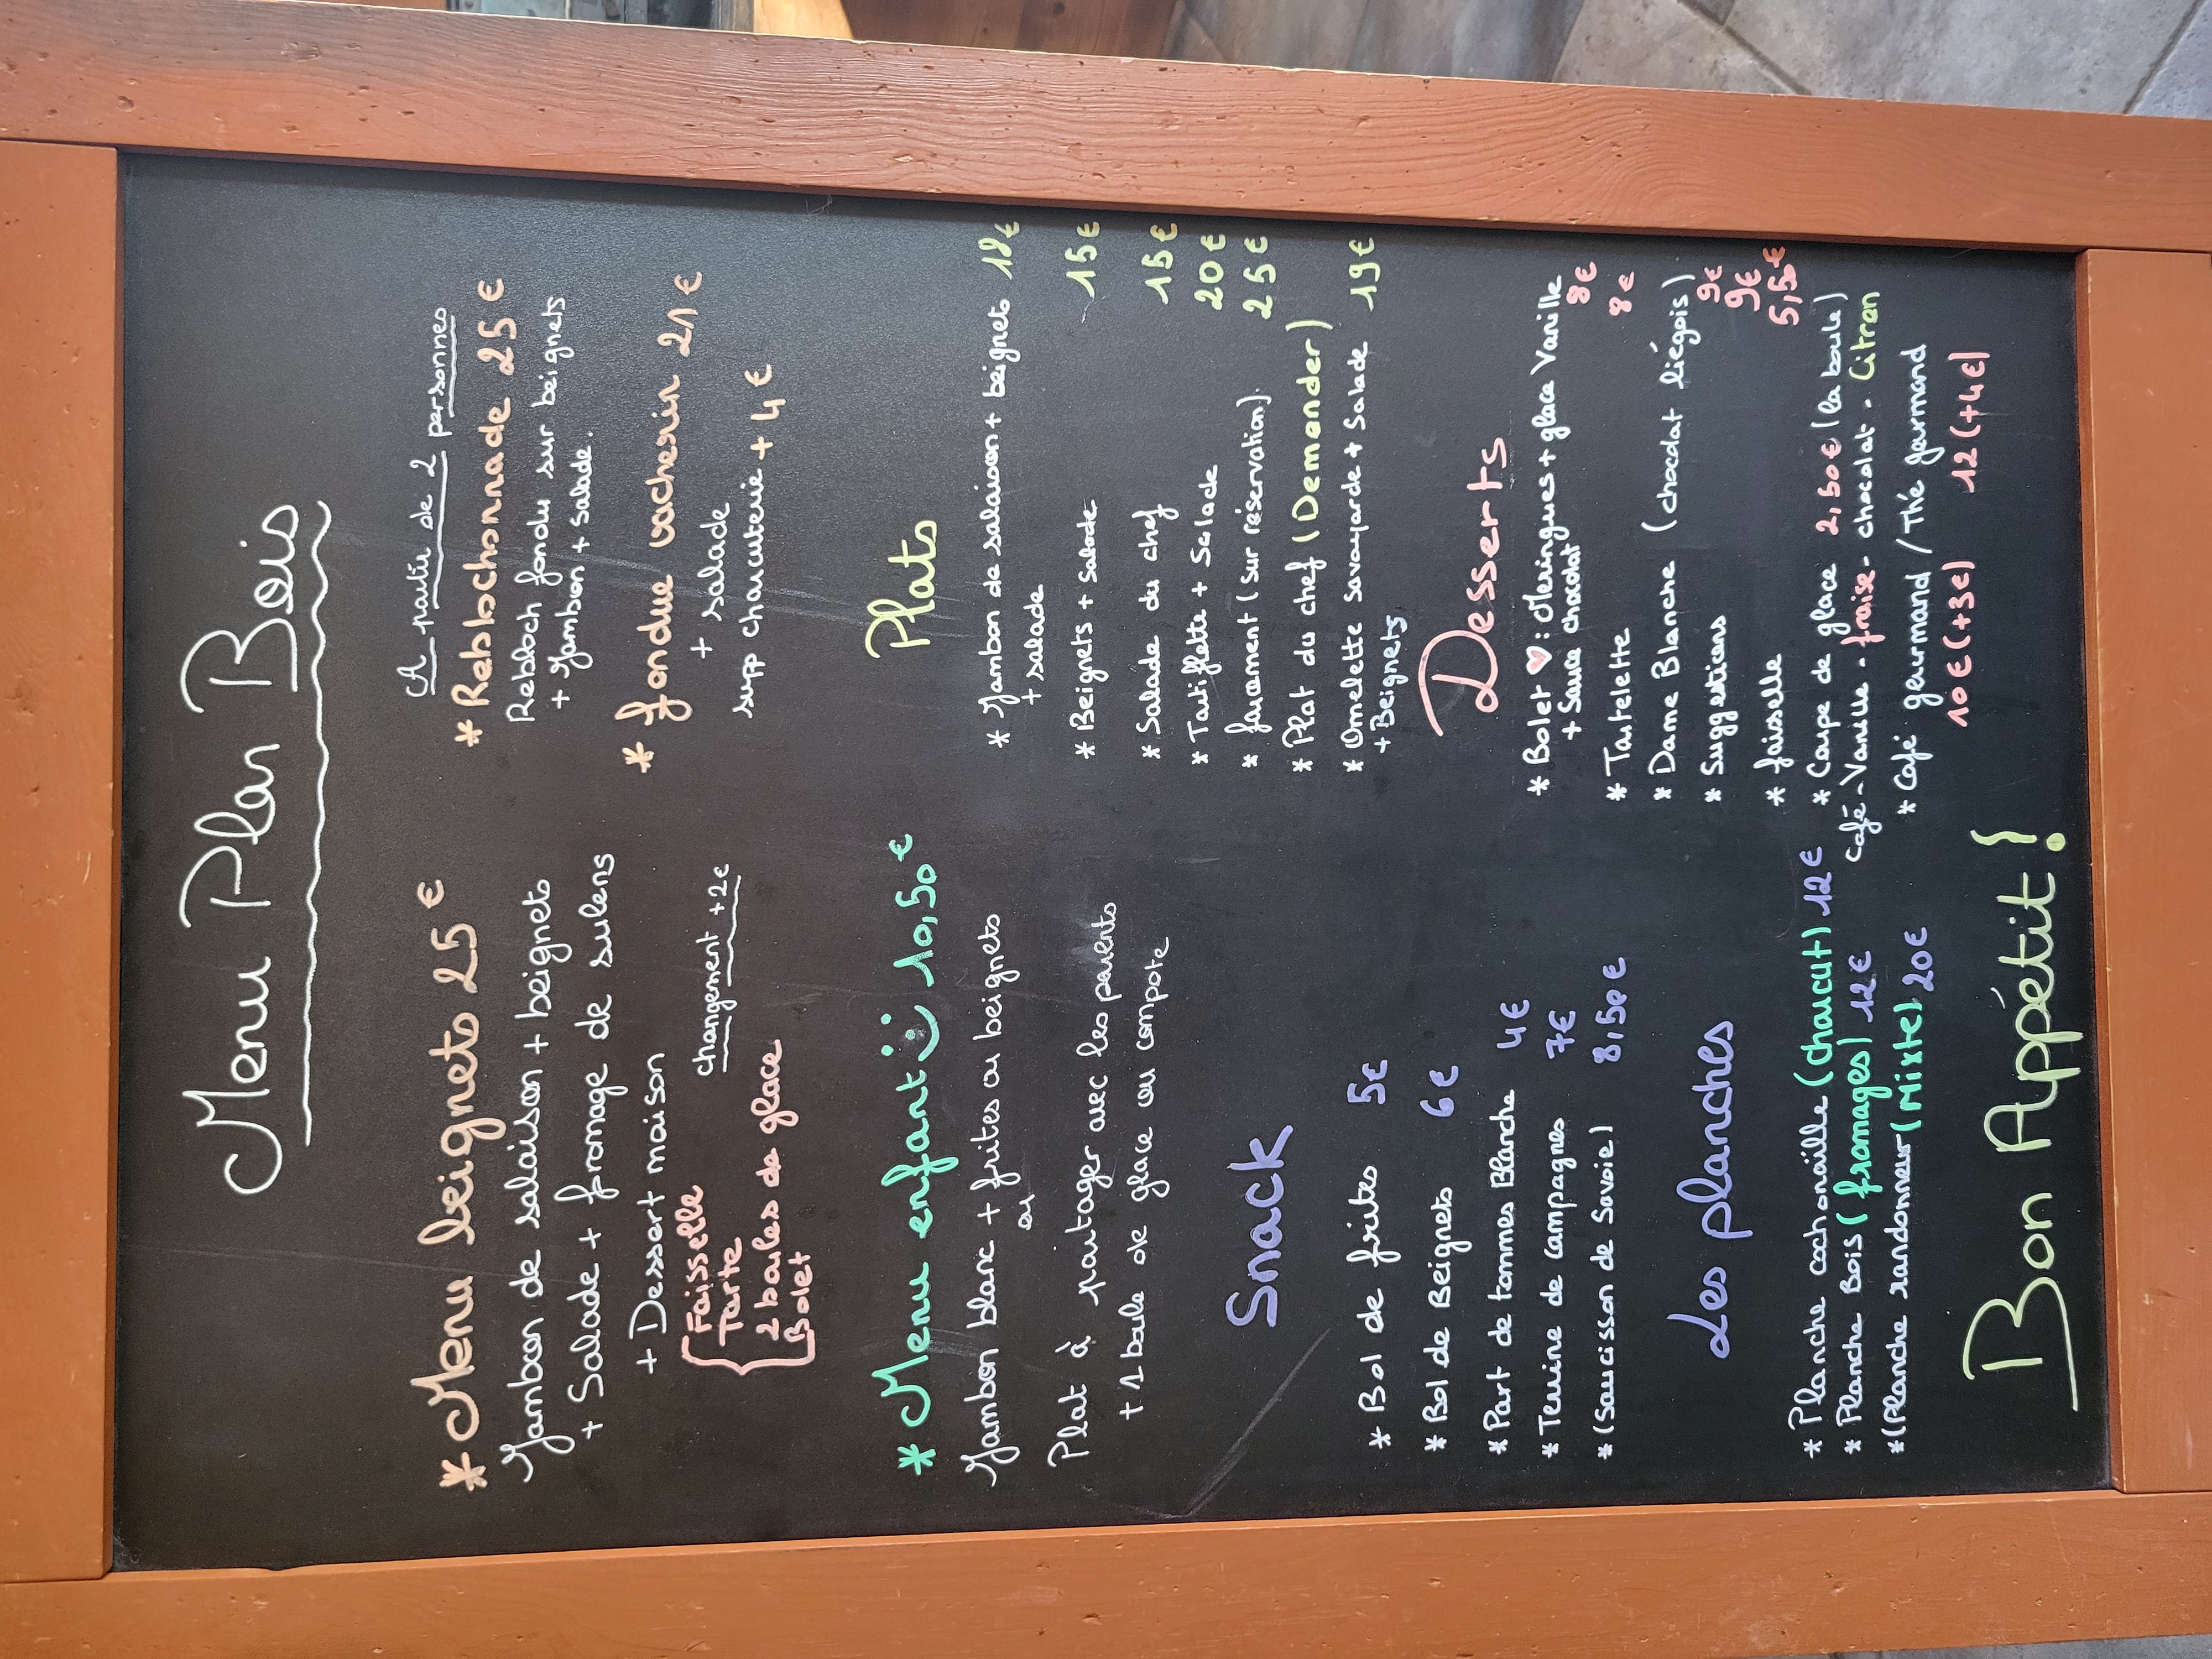 Menu Plan Bois
* Menu beignets 25€
Jambon de salaison + beignets
+ Salade + fromage de sulens
+ Dessert maison
changement +2€
Faisselle
Tarte
2 boules de glace
Bolet
* Menu enfant 10,50€
Jambon blanc + frites ou beignets
ou
Plat à partager avec les parents
+ 1 boule de glace ou compote
Snack
* Bol de frites 5€
* Bol de Beignets 6€
* Part de tommes Blanche 4€
* Terrine de campagnes 7€
* (Saucisson de Savoie) 8,50€
Les planches
* Planche cochonaille (chaucut) 12€
* Planche Bois (fromages) 12€
*(Planche randonneur (Mixte) 20€
A partir de 2 personnes
* Reblochonnade 25€
Rebloch fondu sur beignets
+ Jambon + salade.
* fondue vacherin 21€
+ salade
supp charcuterie + 4€
Plats
* Jambon de salaison + beignets 18€
+ salade
* Beignets + salade 15€
* Salade du chef 15€
* Tartiflette + Salade 20€
* farcement (sur réservation) 25€
* Plat du chef (Demander)
* Omelette savoyarde + Salade 19€
+ Beignets
Desserts
* Bolet ♥: Meringues + glace Vanille
+ Sauce chocolat 8€
* Tartelette 8€
* Dame Blanche (chocolat liégois) 9€
* Suggestions 9€
* faiselle 5,50€
* Coupe de glace 2,50€ (la boule)
Café-Vanille-fraise-chocolat-Citron
* Café gourmand / Thé gourmand
10€ (+3€) 12 (+4€)
Bon Appétit!